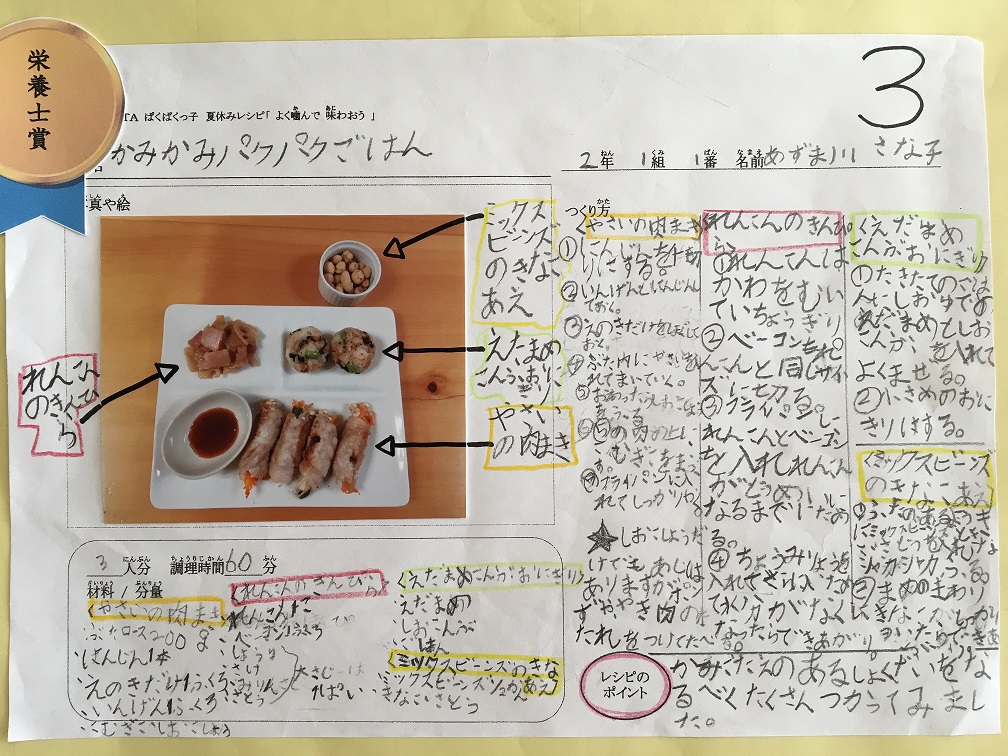 栄養士賞
3
TA ぱくぱくっ子 夏休みレシピ「よく噛んで味わおう」
かみかみパクパクごはん
2年 1組 1番 名前 あずま川 さな子
真や絵
ミックス
ビーンズ
のきなこ
あえ
えだまめ
こんぶおにぎり
やさい
の肉まき
れんこん
のきんぴ
ら
3人分 調理時間60分
材料/分量
〈やさいの肉まき
ぶたロース200g
にんじん1本
えのきだけ1ふくろ
いんげん1ふくろ
こむぎこしおこしょう
〈れんこんのきんぴら〉
れんこん
ベーコン
しょうゆ
さけ
みりん
さとう
大さじ
〈えだまめこんぶおにぎり〉
えだまめ
しおこんぶ
はん
〈ミックスビーンズのきなこあえ〉
ミックスビーンズ
きなこさとう
つくり方
〈やさいの肉まき〉
①にんじんを千切
りにする。
②いんげんとにんじん
ておく。
③えのきだけをほぐして
おく。
④ぶた肉にやさいを
れてまいていく。
⑦フライパンに入
れてしっかりやく
★しおこしょうだ
けでもあじは
ありますがポン
ずややき肉の
たれをつけてたべる。
れんこんのきんぴ
ら
①れんこんは
かわをむい
ていちょうぎり
②ベーコンもれ
んこんと同じサイ
ズに切る。
③フライパンに
れんこんとベーコン
を入れれんこん
がとうめいに
なるまでいためる。
④ちょうみりょうを
入れてさらに
て水分がなく
なったらできあがり。
〈えだまめ
こんぶおにぎり
①たきたてのごは
んにしおゆでの
えだまめとしお
こんぶを入れて
よくまぜる。
②小さめのおに
ぎりにする。
〈ミックスビーンズ
のきなこあえ〉
レシピの
ポイント
かみごたえのあるしょくざいをな
るべくたくさんつかってみまし
た。